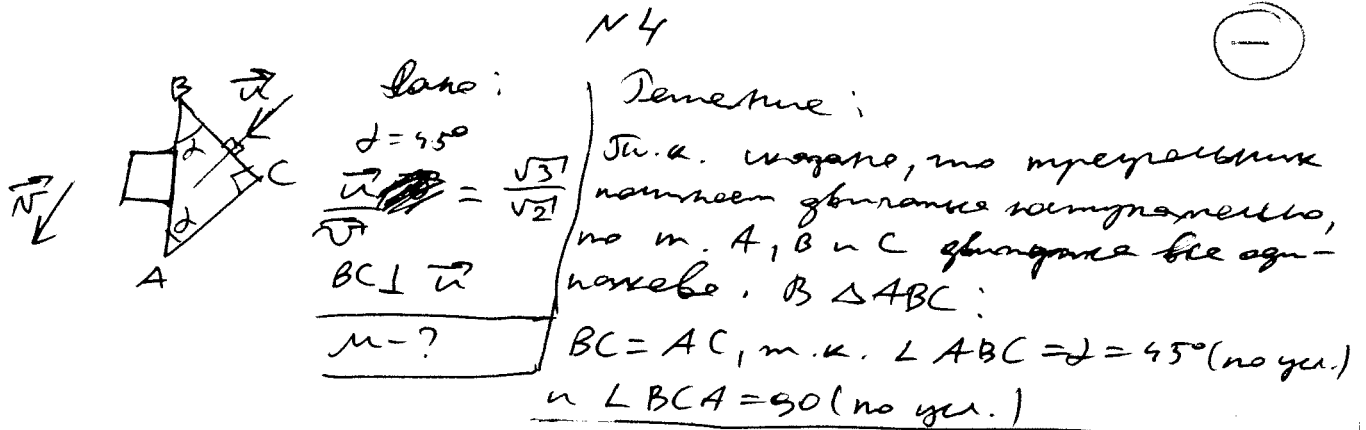 N 4
B
u
α
C
α
v
A
Дано:
α = 45°
u / v = √3 / √2
BC ⊥ u
μ - ?
Решение:
Т.к. сказано, что треугольник
начинает двигаться поступательно,
то т. A, B и C движутся все оди-
наково. В △ABC:
BC = AC, т.к. ∠ABC = α = 45° (по усл.)
и ∠BCA = 90 (по усл.)